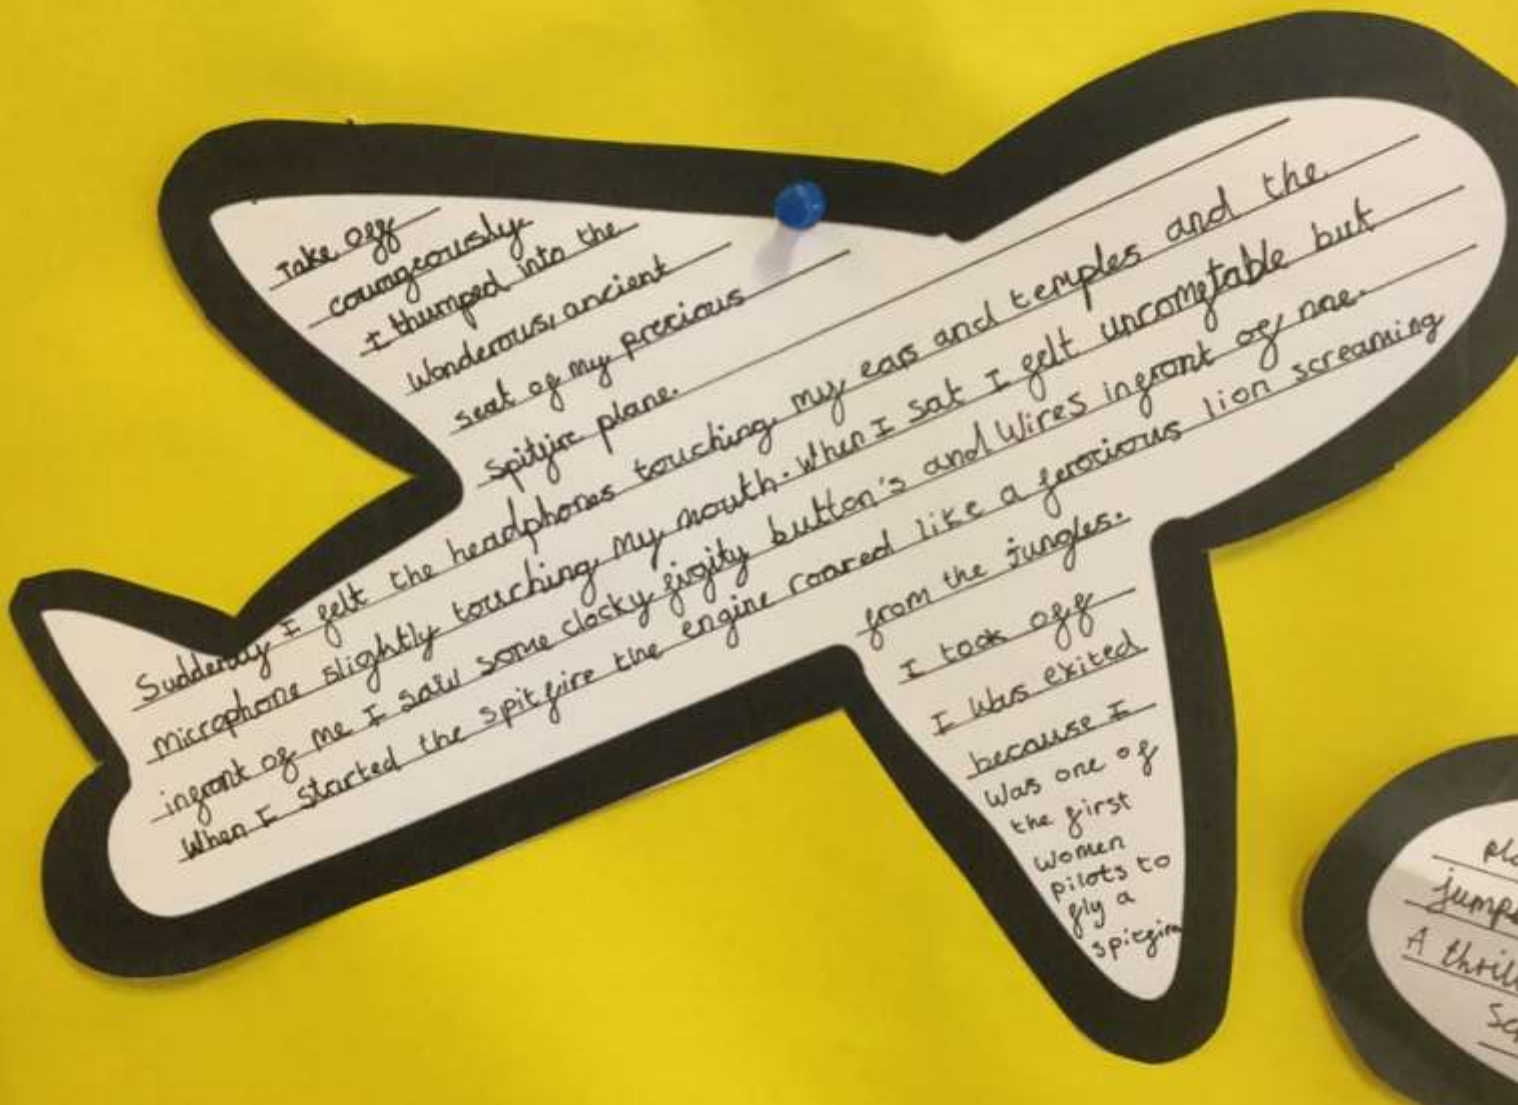 Take off
courageously
I thumped into the
Wonderous, ancient
seat of my precious
Spitfire plane.
Suddenly I felt the headphones touching my ears and temples and the
microphone slightly touching my mouth. When I sat I felt uncomftable but
infront of me I saw some clocky figity button's and Wires infront of me.
When I started the spitfire the engine roared like a ferocious lion screaming
from the jungles.
I took off
I Was exited
because I
Was one of
the first
Women
pilots to
fly a
spitfire
A